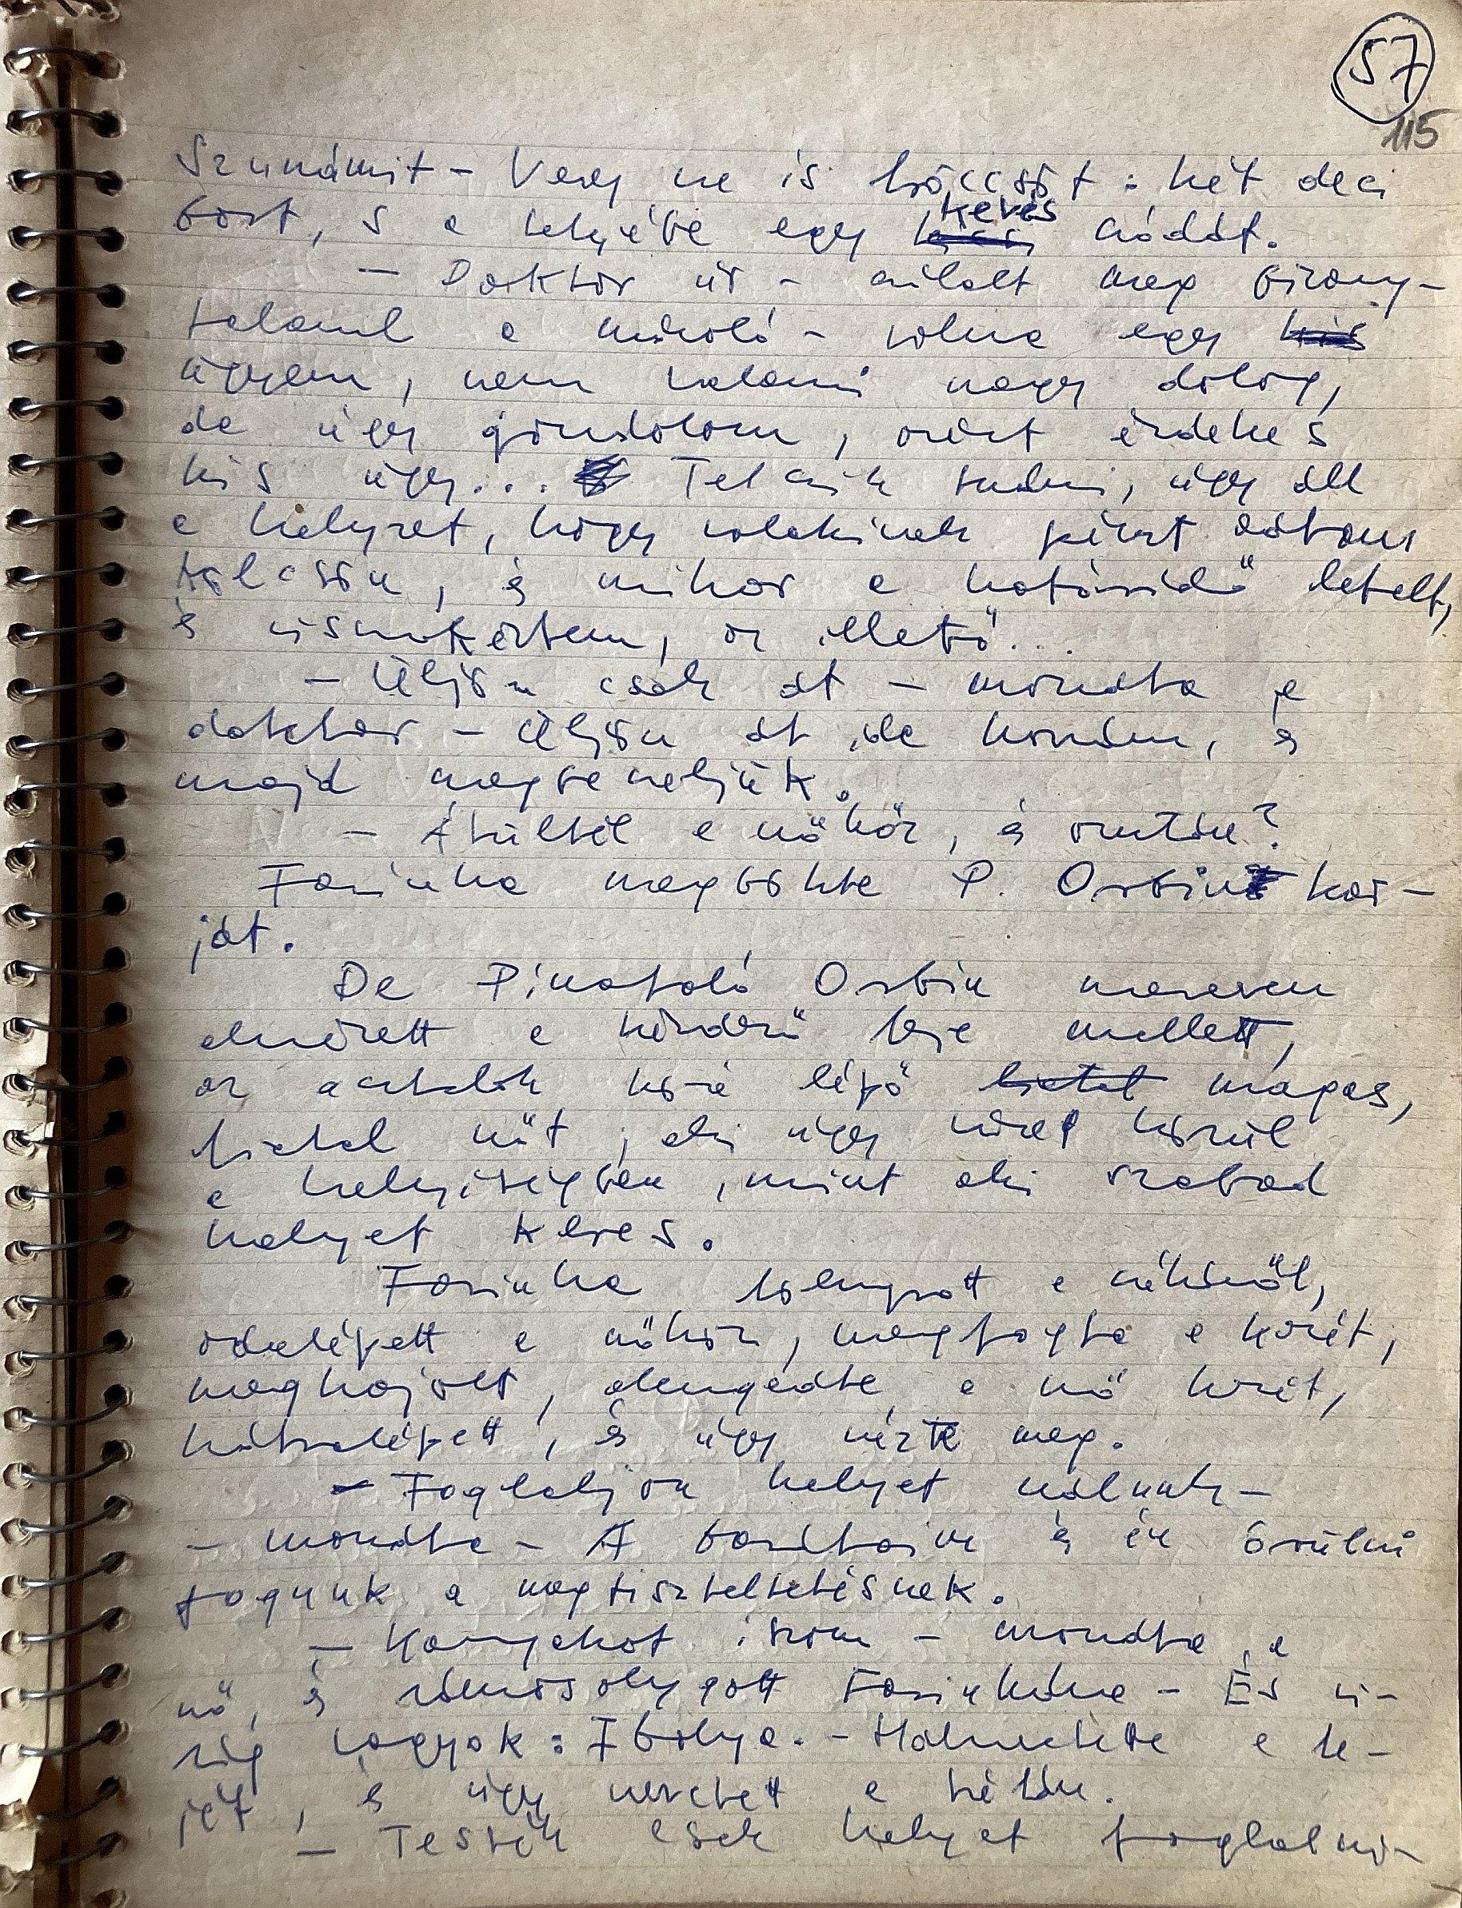 57
115
Szunámit – Vagy ne is fröccsöt: két deci
bort, s a tetejébe egy kevés szódát.
– Doktor úr – szólalt meg bizony-
talanul a – volna egy kis
ügyem, nem valami nagy dolog,
de úgy gondolom, azért érdekes
kis ügy... Tetszik tudni, úgy áll
a helyzet, hogy valakinek pénzt adtam
kölcsön, és mikor a határidő letelt,
és visszakértem, az illető...
– Üljön csak át – mondta a
doktor – Üljön át ide hozzám, és
majd megbeszéljük.
– Átültél a nőhöz, és azután?
Farinka megbökte P. Orbin kar-
ját.
De Pináfoló Orbin mereven
elnézett a kérdező feje mellett,
az asztalok közé lépő fiatal magas,
fiatal nőt, aki úgy nézet körül
a helyiségben, mint aki szabad
helyet keres.
Farinka felugrott a székéről,
odalépett a nőhöz, megfogta a kezét,
meghajolt, elengedte a nő kezét,
hátralépett, és úgy nézte meg.
– Foglaljon helyet nálunk –
– mondta – A barátaim és én örülni
fogunk a megtiszteltetésnek.
– Konyakot iszom – mondta a
nő, és rámosolygott Farinkára – És vi-
rág vagyok: Ibolya. – Hátravetette a fe-
jét, és úgy nevetett a férfira.
– Tessék csak helyet foglalni –